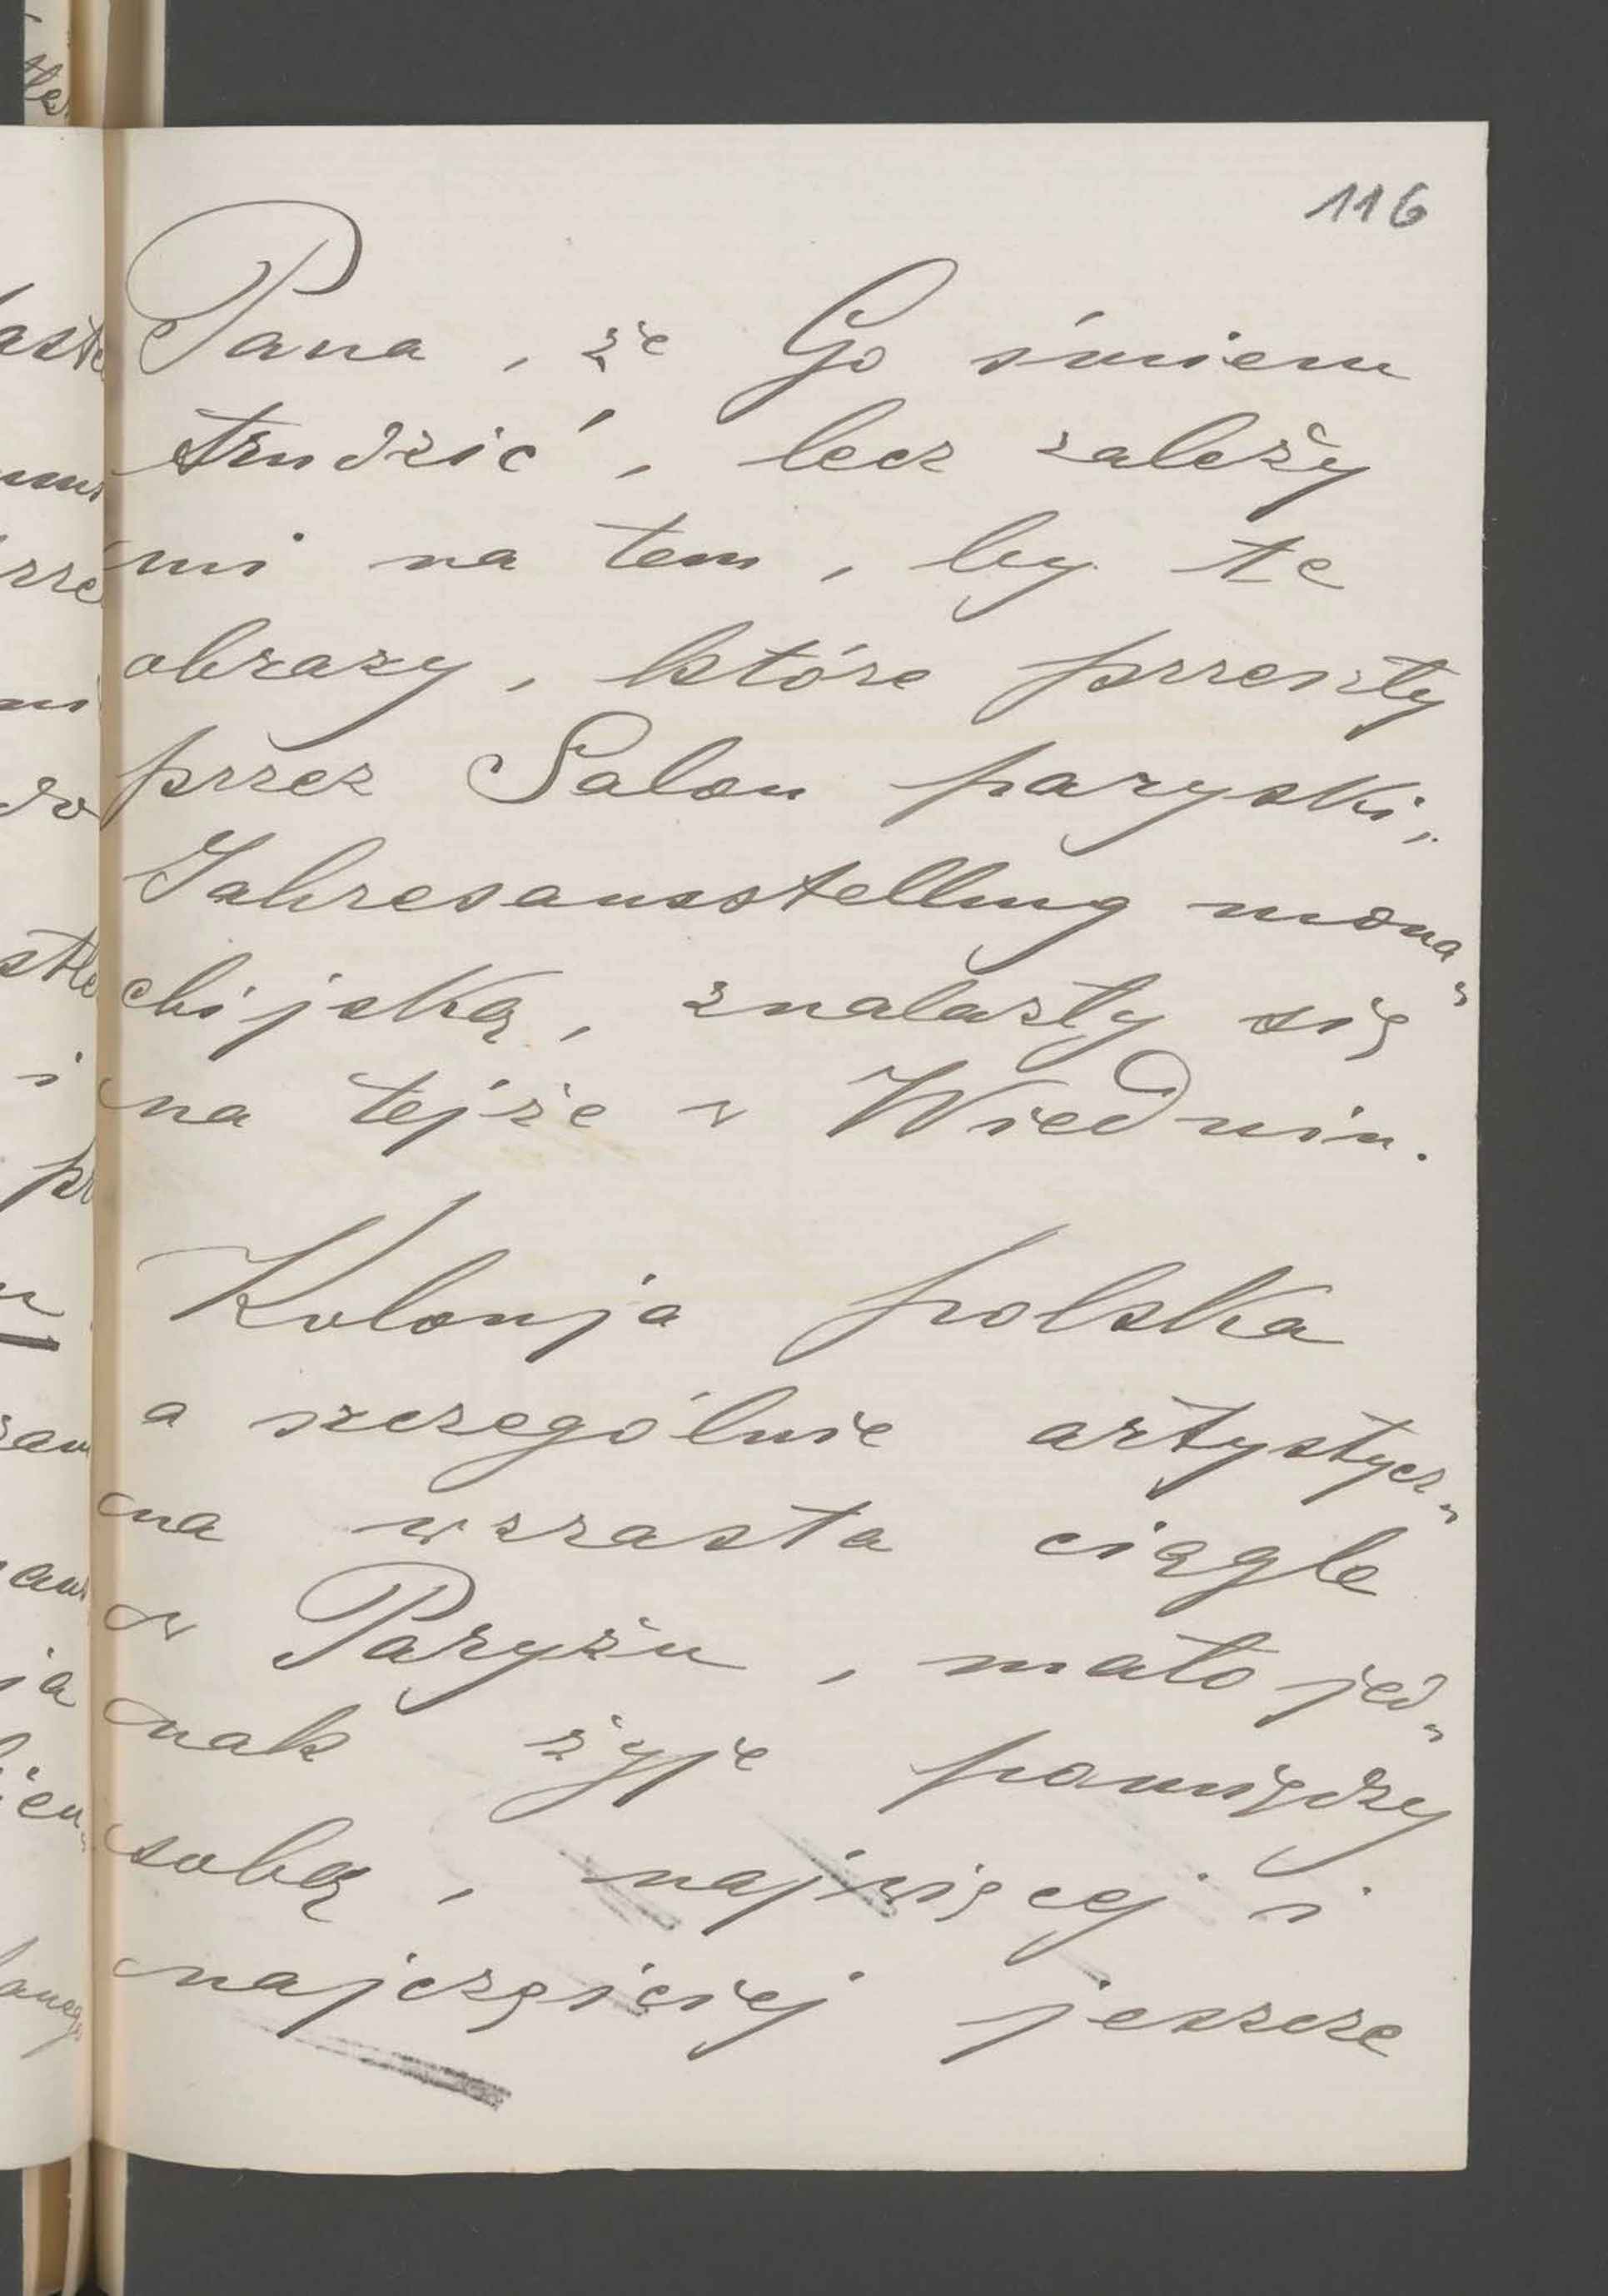 116
Pana, że Go śmiem
trudzić, lecz zależy
mi na tem, by te
obrazy, które przeszły
przez Salon paryski,
Jahresausstellung mona„
chijską, znalazły się
na tejże w Wiedniu.
Kolonja polska
a szczególnie artystycz„
na wzrasta ciągle
w Paryżu, mało jed„
nak żyje pomiędzy
sobą, najwięcej i
najczęściej jeszcze